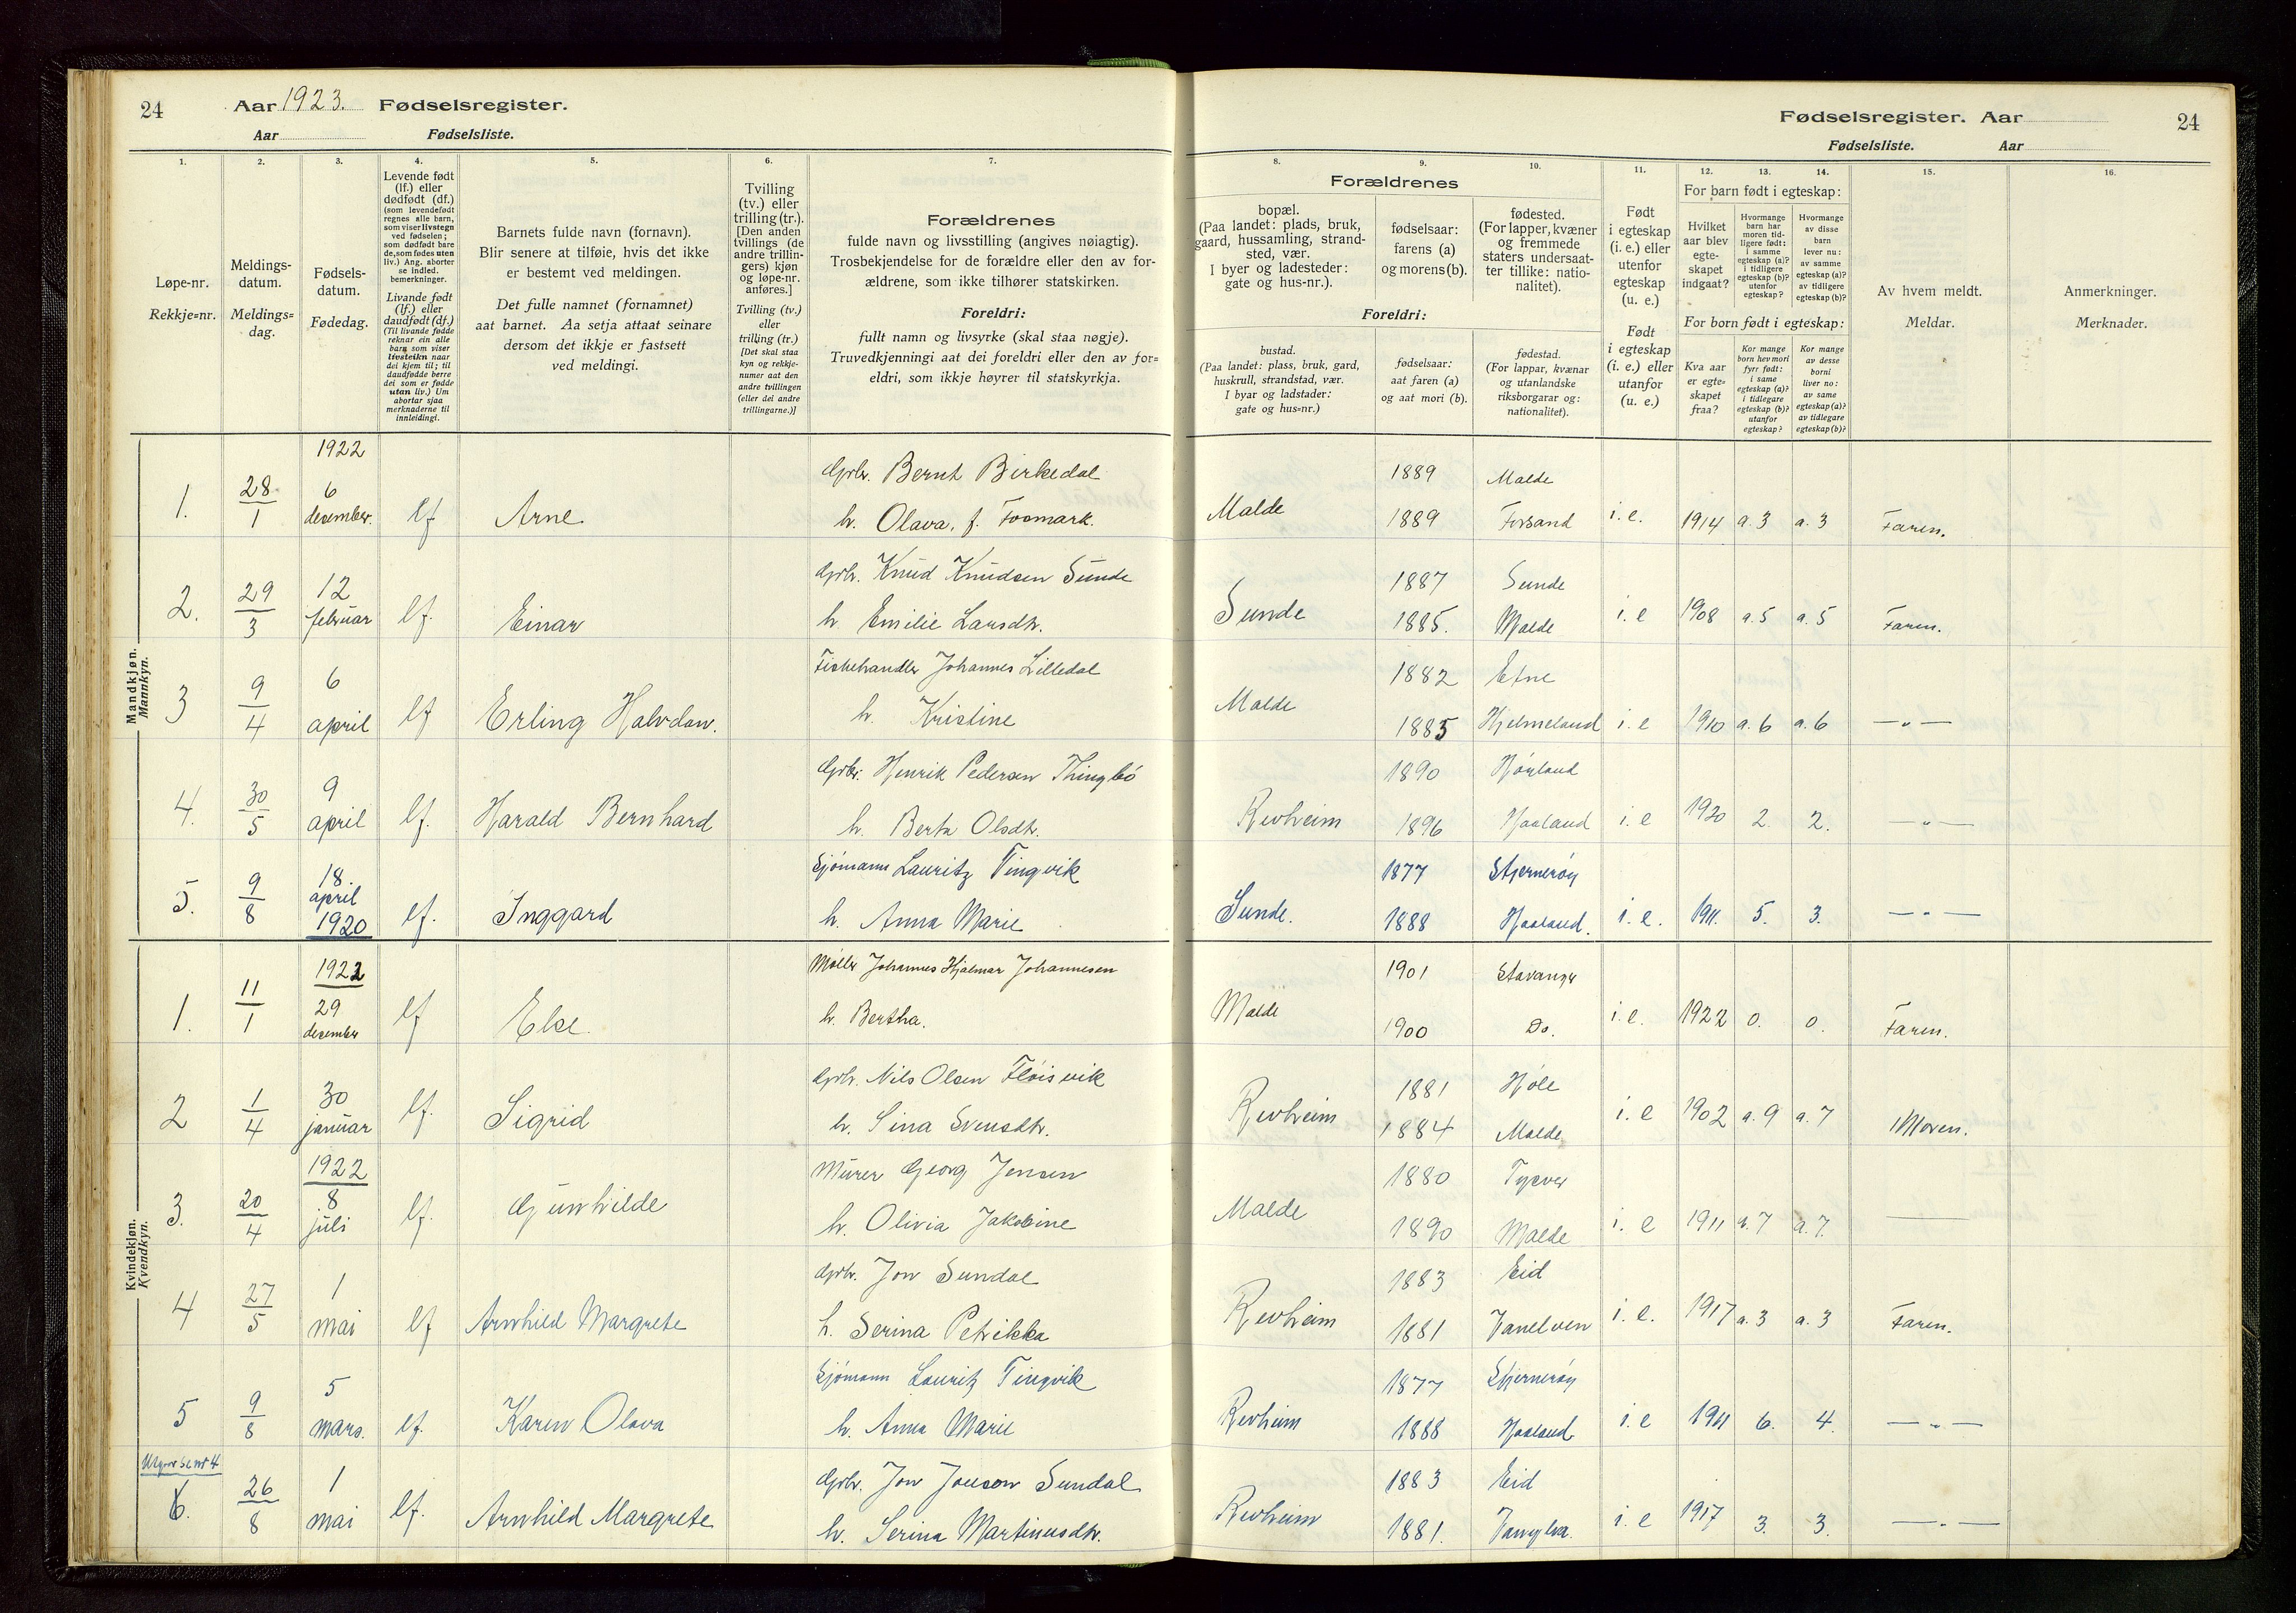 24 Aar 1923. Fødselsregister.
Aar Fødselsliste.
Fødselsregister. Aar 24
Fødselsliste. Aar
1. 2. 3. 4. 5. 6. 7. 8. 9. 10. 11. 12. 13. 14. 15. 16.
Løpe-nr.
Rekkje=nr.
Meldings-
datum.
Meldings=
dag.
Fødsels-
datum.
Fødedag.
Levende født
(lf.) eller
dødfødt (df.)
(som levendefødt
regnes alle barn,
som viser livstegn
ved fødselen;
som dødfødt bare
de, som fødes uten
liv.) Ang. aborter
se indled.
bemerkninger.
Livande født
(lf.) eller
daudfødt (df.)
(Til livande fødde
reknar ein alle
barn som viser
livsteikn naar
dei kjem til; til
daudfødde berre
dei som er fødde
utan liv.) Um
abortar sjaa
merknaderne til
innleidingi.
Barnets fulde navn (fornavn).
Blir senere at tilføie, hvis det ikke
er bestemt ved meldingen.
Det fulle namnet (fornamnet)
aat barnet. Aa setja attaat seinare
dersom det ikkje er fastsett
ved meldingi.
Tvilling
(tv.) eller
trilling (tr.).
[Den anden
tvillings (de
andre trillin-
gers) kjøn
og løpe-nr.
anføres.]
Tvilling (tv.)
eller
trilling (tr.)
[Det skal staa
kyn og rekkje-
numer aat den
andre tvillingen
(eller dei andre
trillingarne.)]
Forældrenes
fulde navn og livsstilling (angives nøiagtig).
Trosbekjendelse for de forældre eller den av for-
ældrene, som ikke tilhører statskirken.
Foreldri:
fullt namn og livsyrke (skal staa nøgje).
Truvedkjenningi aat dei foreldri eller den av for=
eldri, som ikkje høyrer til statskyrkja.
Forældrenes
bopæl.
(Paa landet: plads, bruk,
gaard, hussamling, strand-
sted, vær.
I byer og ladesteder:
gate og hus-nr.).
fødselsaar:
farens (a)
og morens (b).
fødested.
(For lapper, kvæner
og fremmede
staters undersaat-
ter tillike: natio-
nalitet).
Foreldri:
bustad.
(Paa landet: plass, bruk, gard,
huskrull, strandstad, vær.
I byar og ladstader:
gate og hus=nr.)
fødselsaar:
aat faren (a)
og aat mori (b).
fødestad.
(For lappar, kvænar
og utanlandske
riksborgarar og:
nationalitet).
Født
i egteskap
(i. e.) eller
utenfor
egteskap
(u. e.)
Født
i egteskap
(i. e.) eller
utanfor
(u. e.)
For barn født i egteskap:
Hvilket
aar blev
egte-
skapet
indgaat?
Hvormange
barn har
moren tid-
ligere født:
i samme
egteskap (a)?
i tidligere
egteskap (b)?
utenfor
egteskap?
Hvormange
av disse
barn
lever nu:
av samme
egteskap (a)?
av tidligere
egteskap (b)?
For born født i egteskap:
Kva aar
er egte-
skapet
fraa?
Kor mange
born hev mori
fyrr født:
i same
egteskap (a)?
i tidlegare
egteskap (b)?
utanfor
egteskap?
Kor mange
av desse
borni
liver no:
av same
egteskap (a)?
av tidlegare
egteskap (b)?
Av hvem meldt.
Meldar.
Anmerkninger.
Merknader.
Mandkjøn.
Mannkyn.
1922
1. 28/1 6 december. lf Arne Gbr. Bernt Birkedal Malde 1889 Malde
h. Olava, f. Fosmark. 1889 Forsand i. e. 1914 a. 3 a. 3 Faren.
2. 29/3 12 februar lf. Einar Gbr. Knud Knudsen Sunde Sunde 1887 Sunde
h. Emilie Larsdtr. 1885. Malde i. e 1908 a. 5 a. 5 Faren.
3 9/4 6 april lf Erling Halvdan. Fiskehandler Johannes Lilledal Malde 1882 Etne
h. Kristine 1885 Hjelmeland i. e 1910 a. 6 a. 6 —„—
4. 30/5 9 april lf. Harald Bernhard Gbr. Henrik Pedersen Thingbø Revheim 1890 Høyland
h. Berta Olsdtr. 1896 Haaland i. e 1920 2. 2. —„—
5. 9/8 18. april 1920 lf. Inggard Sjømann Lauritz Tingvik Sunde. 1877 Stjernerøy
h. Anna Marie 1888 Haaland. i. e. 1911. 5. 3. —„—
Kvindekjøn.
Kvendkyn.
1922
1. 11/1 29 december lf Else. Møller Johannes Hjalmar Johannesen Malde 1901 Stavanger
h. Bertha. 1900 Do. i. e. 1922 0. 0. Faren.
2 1/4 30 januar lf. Sigrid Gbr. Nils Olsen Fløisvik Revheim 1881 Høle
h. Sina Svensdtr. 1884 Malde i. e 1902 a. 9 a. 7 Moren.
1922
3. 20/4 8 juli lf. Gunhilde Murer Georg Jensen Malde 1880 Tysvær
h. Olivia Jakobine 1890 Malde i. e 1911 a. 7 a. 7. —
4 27/5 1 mai lf Arnhild Margrete Gbr. Jon Sundal Revheim 1883 Eid
h. Serina Petrikka 1881 Vanelven i. e. 1917 a. 3 a. 3 Faren.
5 9/8 5 mars. lf. Karen Olava Sjømann Lauritz Tingvik Revheim 1877 Stjernerøy
h. Anna Marie 1888 Haaland i. e 1911 6. 4. —„—
Utgaar se nr 4
6. 26/8 1 mai lf. Arnhild Margrete Gbr. Jon Jonson Sundal Revheim 1883 Eid
h. Serina Martinusdtr. 1881. i. e 1917 3. 3. —„—